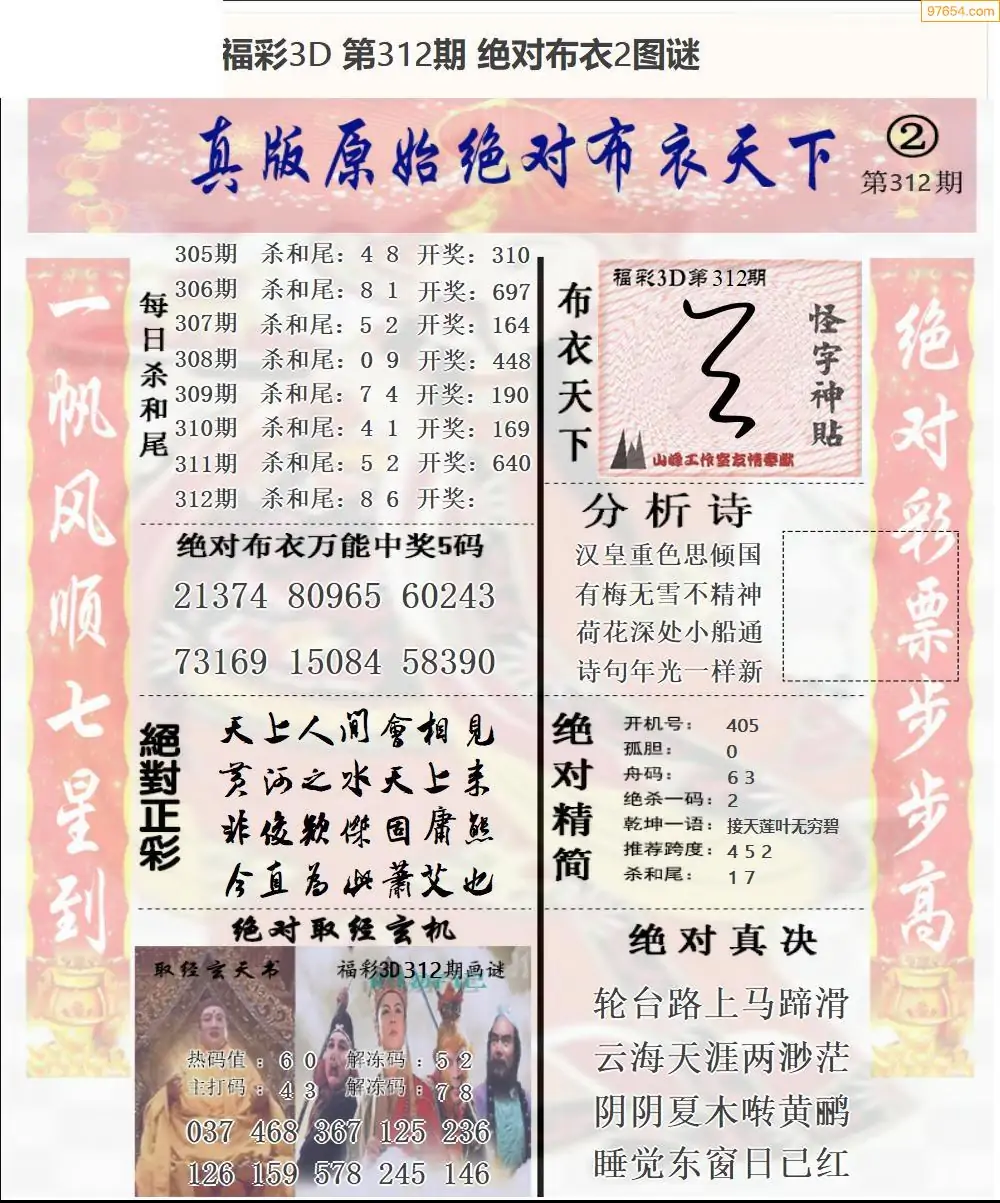 97654.com
福彩3D 第312期 绝对布衣2图谜
真版原始绝对布衣天下
②
第312期
一帆风顺七星到
每日杀和尾
305期 杀和尾：4 8 开奖：310
306期 杀和尾：8 1 开奖：697
307期 杀和尾：5 2 开奖：164
308期 杀和尾：0 9 开奖：448
309期 杀和尾：7 4 开奖：190
310期 杀和尾：4 1 开奖：169
311期 杀和尾：5 2 开奖：640
312期 杀和尾：8 6 开奖：
绝对布衣万能中奖5码
21374 80965 60243
73169 15084 58390
絕對正彩
天上人间會相見
黄河之水天上来
非俊欺傑固庸熊
今直为此蕭艾也
绝对取经玄机
取经玄天书
福彩3D312期画谜
热码值：6 0 解冻码：5 2
主打码：4 3 解冻码：7 8
037 468 367 125 236
126 159 578 245 146
布衣天下
福彩3D第312期
怪字神貼
山峰工作室友情奉献
分析诗
汉皇重色思倾国
有梅无雪不精神
荷花深处小船通
诗句年光一样新
绝对精简
开机号： 405
孤胆： 0
舟码： 6 3
绝杀一码：2
乾坤一语：接天莲叶无穷碧
推荐跨度：4 5 2
杀和尾： 1 7
绝对真决
轮台路上马蹄滑
云海天涯两渺茫
阴阴夏木啭黄鹂
睡觉东窗日己红
绝对彩票步步高